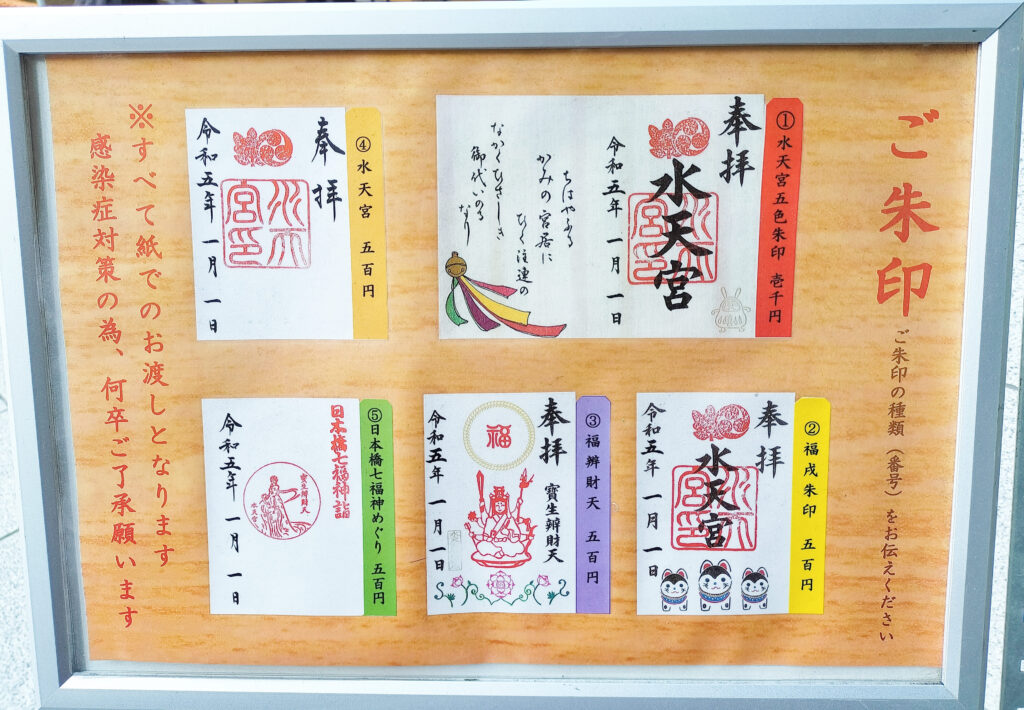 ご朱印
ご朱印の種類（番号）をお伝えください
①水天宮五色朱印 壱千円
奉拝
水天宮
令和五年 一月 一日
ちはやふる
かみの宮居に
ひく注連の
なかくひさしき
御代いのる
なり
②福戌朱印 五百円
奉拝
水天宮
令和五年 一月 一日
③福辨財天 五百円
奉拝
寶生辯財天
福
令和五年 一月 一日
④水天宮 五百円
奉拝
水天宮印
令和五年 一月 一日
⑤日本橋七福神めぐり 五百円
日本橋七福神詣
寶生辯財天
水天宮
令和五年 一月 一日
※すべて紙でのお渡しとなります
感染症対策の為、何卒ご了承願います